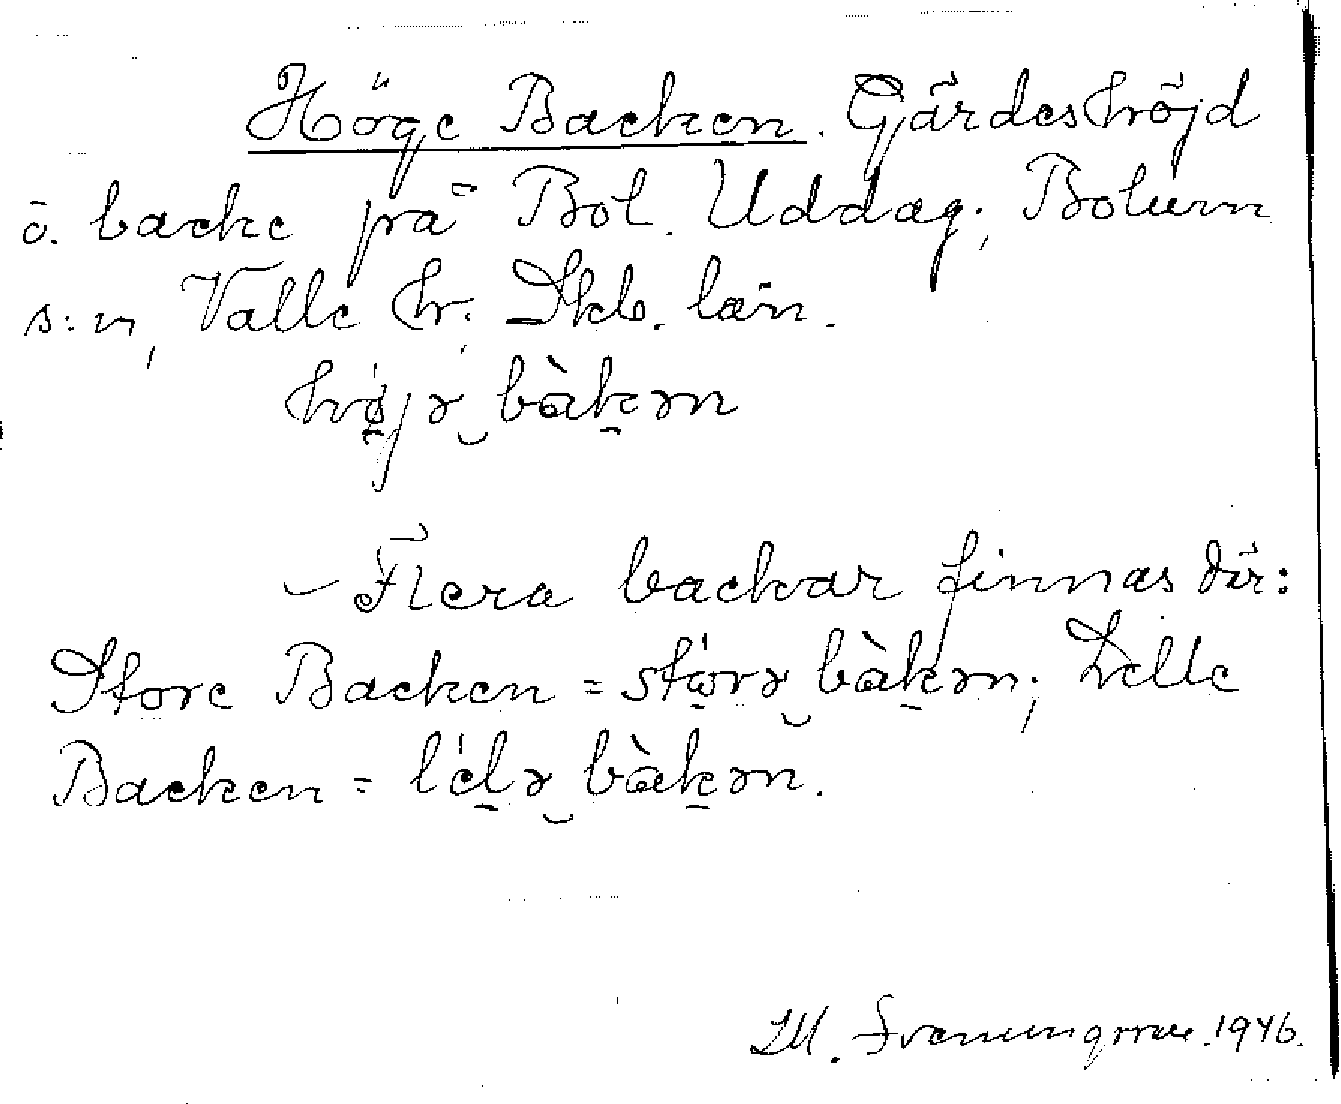 Höge Backen. Gärdeshöjd
ö. backe på Bol. Uddag., Bolum
s:n, Valle hr. Skb. län.
hø̀jə bàkən
– Flera backar finnas där:
Store Backen = stórə bàkən; Lelle
Backen = lélə bàkən.
1946.